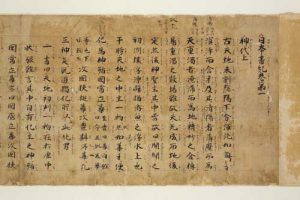 日本書紀卷第一
神代上
古天地未剖陰陽不分渾沌如雞子
溟涬而含牙及其清陽者薄靡而為
天重濁者淹滯而為地精妙之合搏
易重濁之凝難故天先成而地後
定然後神聖生其中焉故曰開闢之
初洲壤浮漂譬猶游魚之浮水上也
于時天地之中生一物狀如葦牙便
化為神号國常立尊
次國狹槌尊次豐斟渟尊凡
三神矣乾道獨化所以成此純男
一書曰天地初判一物在於虛中
狀貌難言其中自有化生之神号
國常立尊亦曰國底立尊次國狹